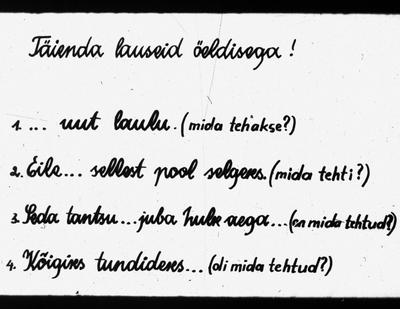 Täienda lauseid öeldisega!
1. ... uut laulu. (mida tehakse?)
2. Eile... sellest pool selgeks. (mida tehti?)
3. Seda tantsu... juba hulk aega... (on mida tehtud?)
4. Kõigiks tundideks... (oli mida tehtud?)